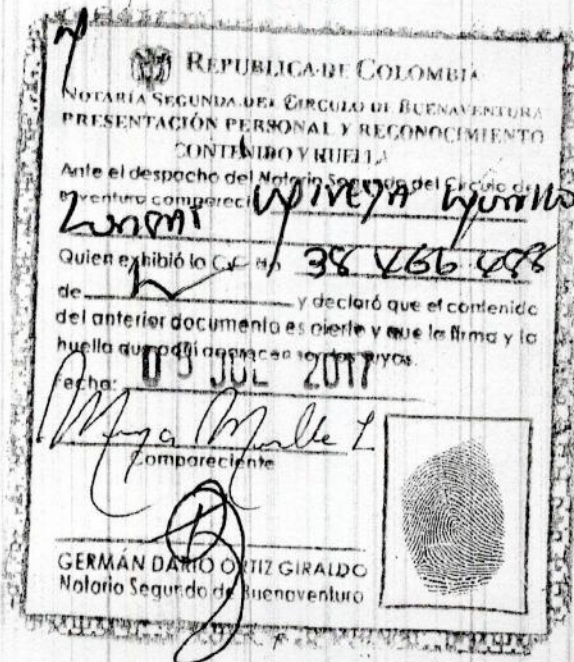 REPUBLICA DE COLOMBIA
NOTARÍA SEGUNDA DEL CIRCULO DE BUENAVENTURA
PRESENTACIÓN PERSONAL Y RECONOCIMIENTO
CONTENIDO Y HUELLA
Ante el despacho del Notario Segundo del Circulo de
B/ventura compareció
Quien exhibió la C.C. No 38 466
de y declaró que el contenido
del anterior documento es cierto y que la firma y la
huella que aquí aparecen son los suyos.
Fecha: JUL 2017
Compareciente
GERMÁN DARIO ORTIZ GIRALDO
Notario Segundo de Buenaventura